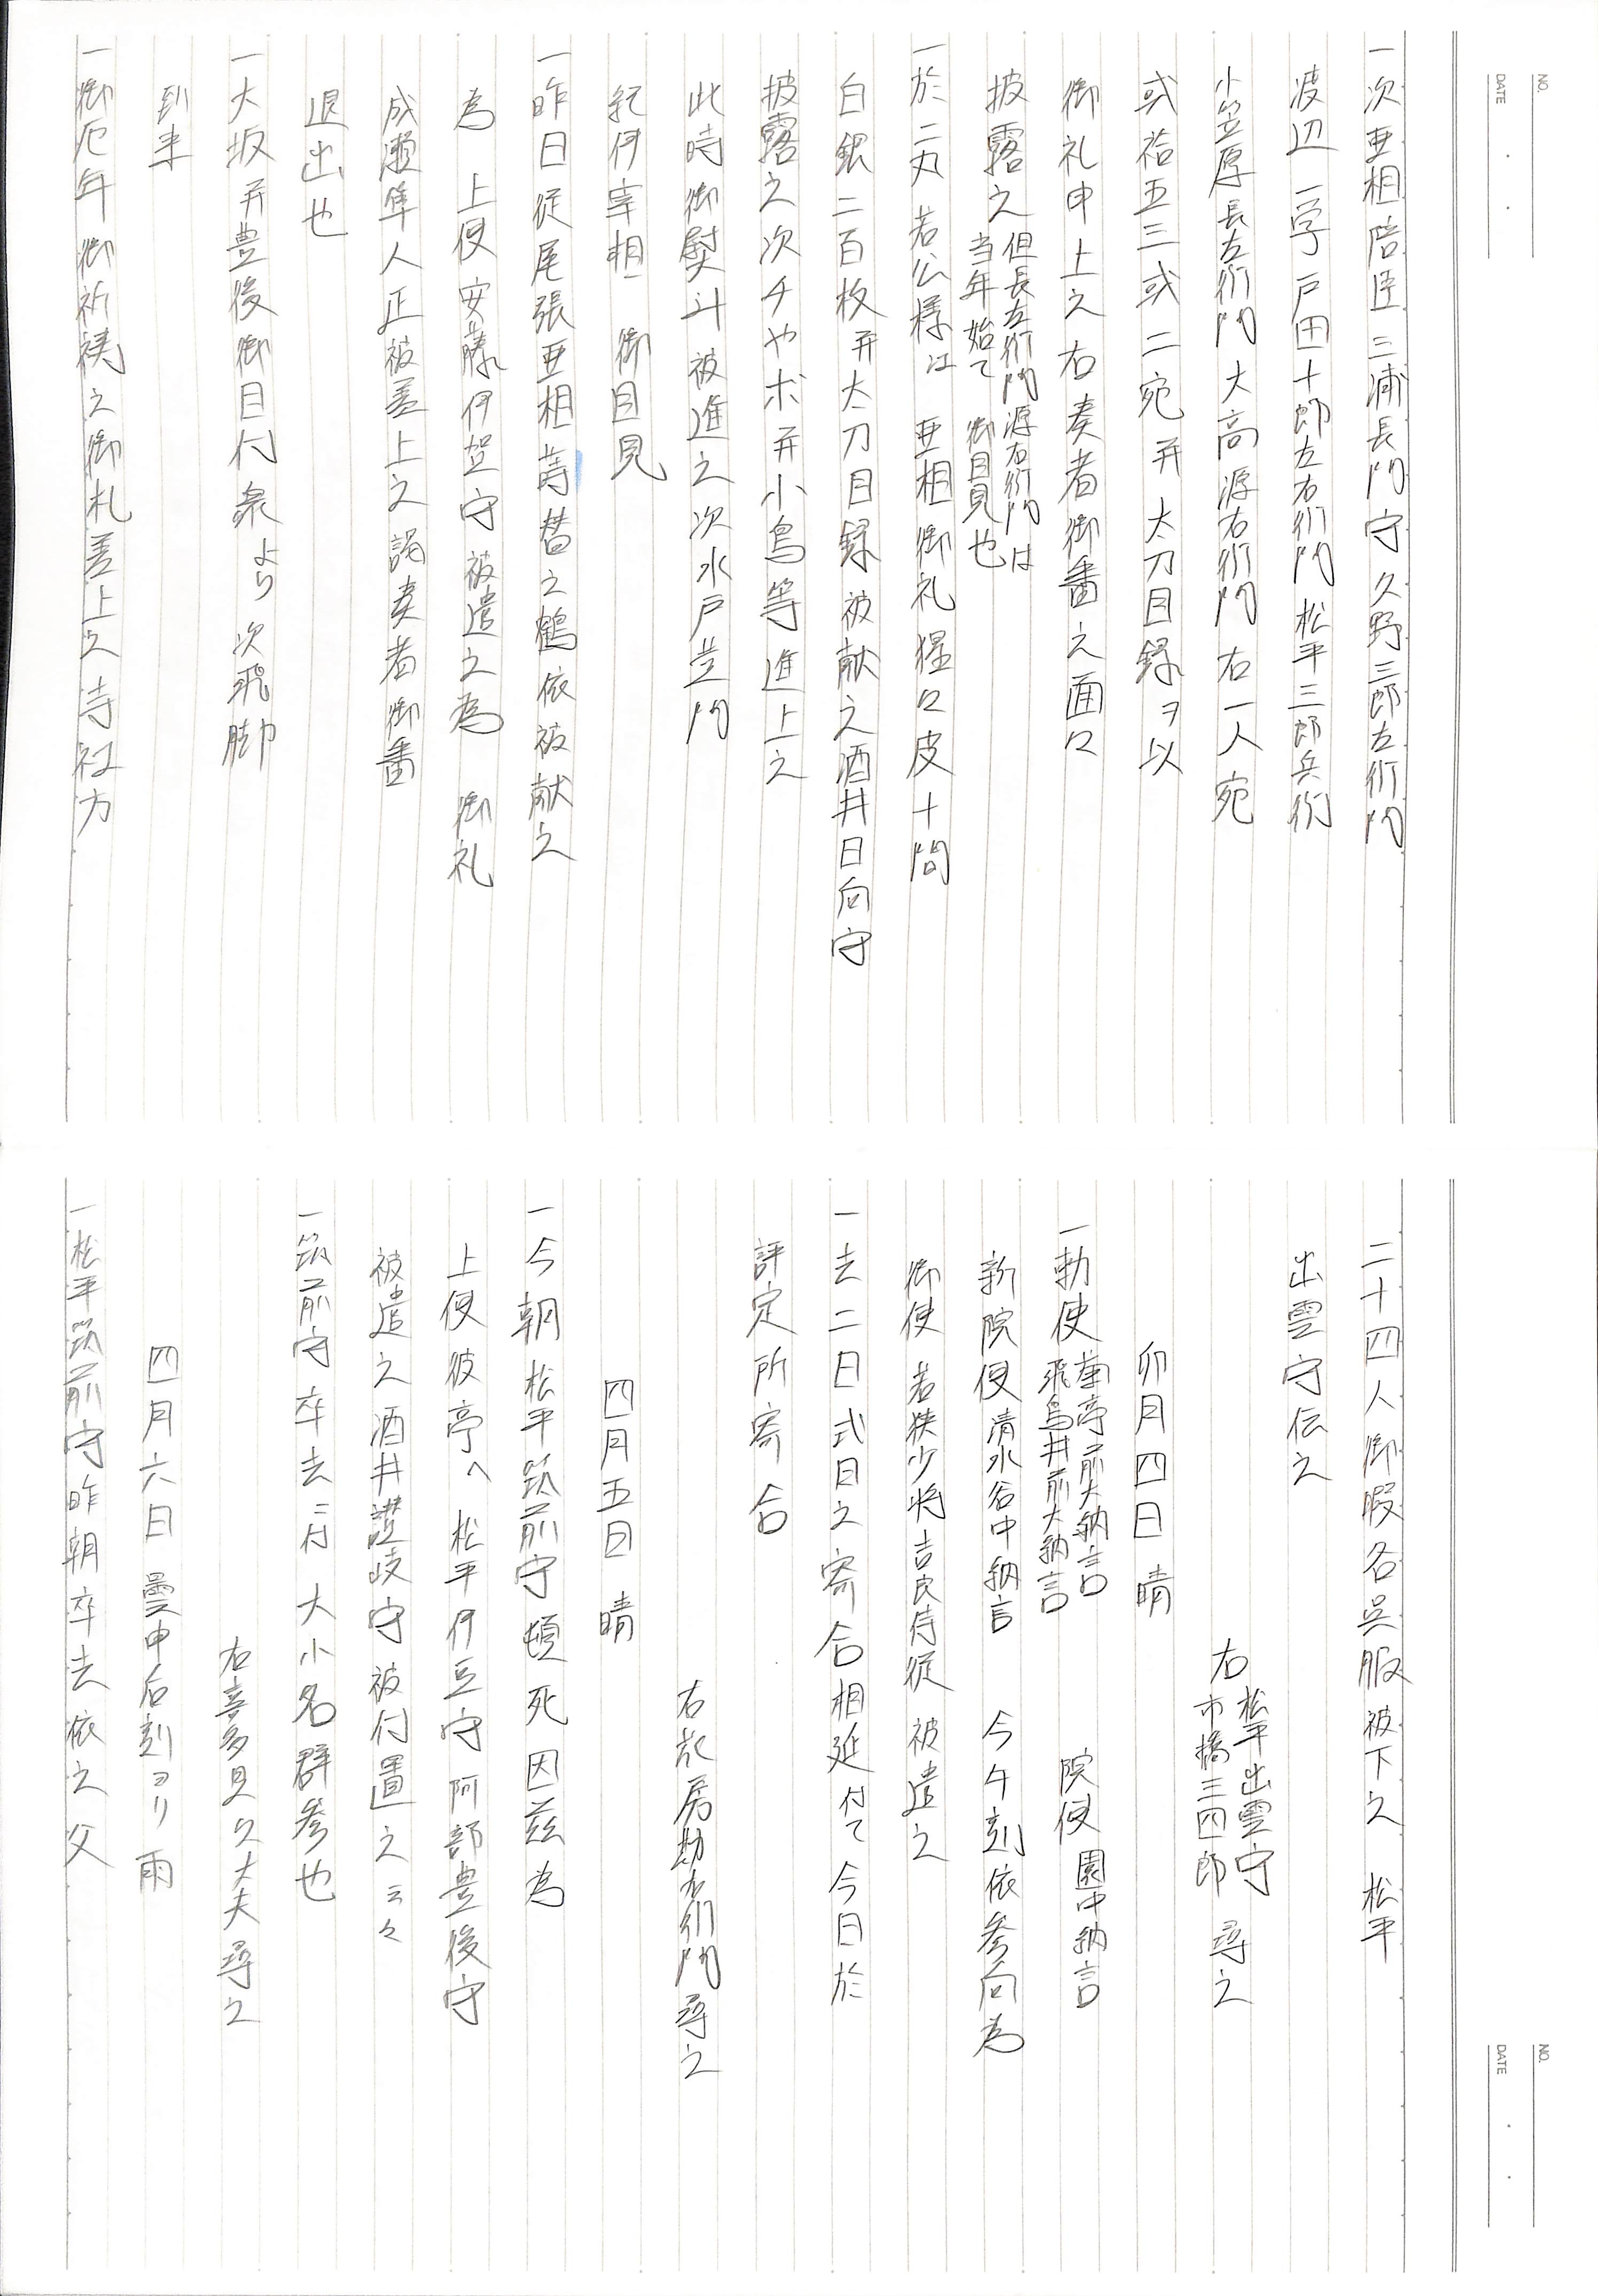 NO.
DATE
一次亜相陪臣三浦長門守久野三郎左衛門
渡辺一学戸田十郎左右衛門松平三郎兵衛
小笠原長左衛門大高源右衛門右一人宛
或袷五三或二宛并太刀目録ヲ以
御礼申上之右奏者御番之面々
披露之 但長左衛門源右衛門は
当年始て 御目見也
一於二丸 若公様江 亜相御礼猩々皮十間
白銀二百枚并太刀目録被献之酒井日向守
披露之次チヤボ并小鳥等進上之
此時御熨斗被進之次水戸黄門
紀伊宰相 御目見
一昨日従尾張亜相蒔替之鶴依被献之
為 上使安藤伊賀守被遣之為 御礼
成瀬隼人正被差上之謁奏者御番
退出也
一大坂并豊後御目付衆より次飛脚
到来
一御厄年御祈祷之御札差上之寺社方
NO.
DATE
二十四人御暇各呉服被下之 松平
出雲守伝之
右 松平出雲守
市橋三四郎 尋之
卯月四日 晴
一勅使 菊亭前大納言
飛鳥井前大納言 院使 園中納言
新院使 清水谷中納言 今午刻依参向為
御使 若狭少将吉良侍従 被遣之
一去二日式日之寄合相延付て今日於
評定所寄合
右花房勘右衛門尋之
四月五日 晴
一今朝松平筑前守頓死因茲為
上使彼亭へ 松平伊豆守 阿部豊後守
被遣之酒井讃岐守被付置之云々
一筑前守卒去ニ付大小名群参也
右喜多見久大夫尋之
四月六日 曇申后刻ヨリ雨
一松平筑前守昨朝卒去依之父